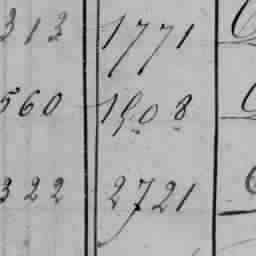 313 1771
560 1808
322 2721